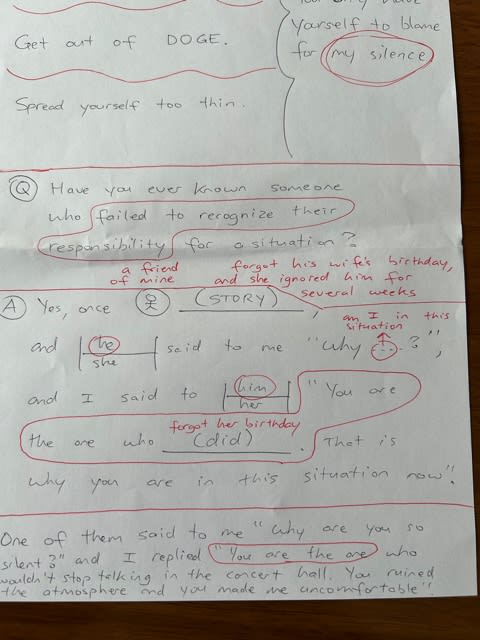 Get out of DOGE.
Spread yourself too thin.
yourself to blame
for my silence
Q Have you ever known someone
who failed to recognize their
responsibility for a situation?
a friend
of mine
forgot his wife's birthday,
and she ignored him for
several weeks
A Yes, once (STORY),
am I in this
situation
and he said to me "Why ...?",
she
and I said to him "You are
her
forgot her birthday
the one who (did). That is
why you are in this situation now".
One of them said to me "Why are you so
silent?" and I replied "You are the one who
wouldn't stop talking in the concert hall. You ruined
the atmosphere and you made me uncomfortable"